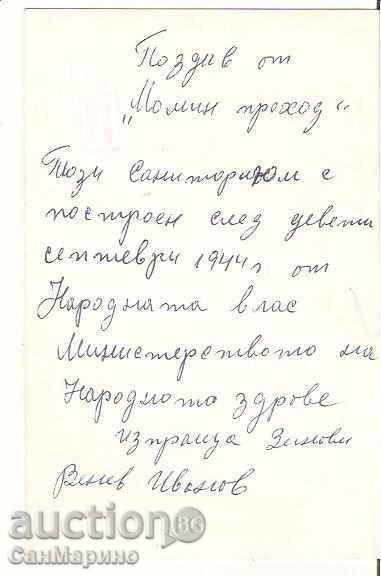 Поздив от
„Момин проход“
Този Саниториюм е
построен след девети
септеври 1944г от
Народната влас
Министерството на
Народното здрове
изпраща Зинови
Венев Иванов
auction BG
СанМарино